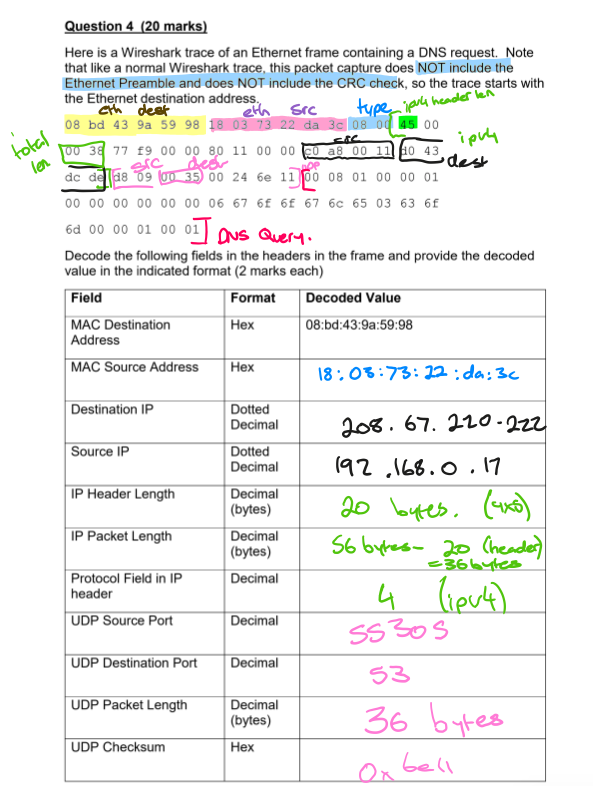 Question 4 (20 marks)
Here is a Wireshark trace of an Ethernet frame containing a DNS request. Note
that like a normal Wireshark trace, this packet capture does NOT include the
Ethernet Preamble and does NOT include the CRC check, so the trace starts with
the Ethernet destination address.
eth dest eth src type ipv4 header len
08 bd 43 9a 59 98 18 03 73 22 da 3c 08 00 45 00
total len src ipv4
00 38 77 f9 00 00 80 11 00 00 c0 a8 00 11 d0 43
src dest dest
dc de d8 09 00 35 00 24 6e 11 00 08 01 00 00 01
00 00 00 00 00 00 06 67 6f 6f 67 6c 65 03 63 6f
6d 00 00 01 00 01 DNS Query.
Decode the following fields in the headers in the frame and provide the decoded
value in the indicated format (2 marks each)
Field Format Decoded Value
MAC Destination Address Hex 08:bd:43:9a:59:98
MAC Source Address Hex 18:03:73:22:da:3c
Destination IP Dotted Decimal 208.67.220.222
Source IP Dotted Decimal 192.168.0.17
IP Header Length Decimal (bytes) 20 bytes. (4x5)
IP Packet Length Decimal (bytes) 56 bytes - 20 (header)
= 36 bytes
Protocol Field in IP header Decimal 4 (ipv4)
UDP Source Port Decimal 55305
UDP Destination Port Decimal 53
UDP Packet Length Decimal (bytes) 36 bytes
UDP Checksum Hex 0x 6e11